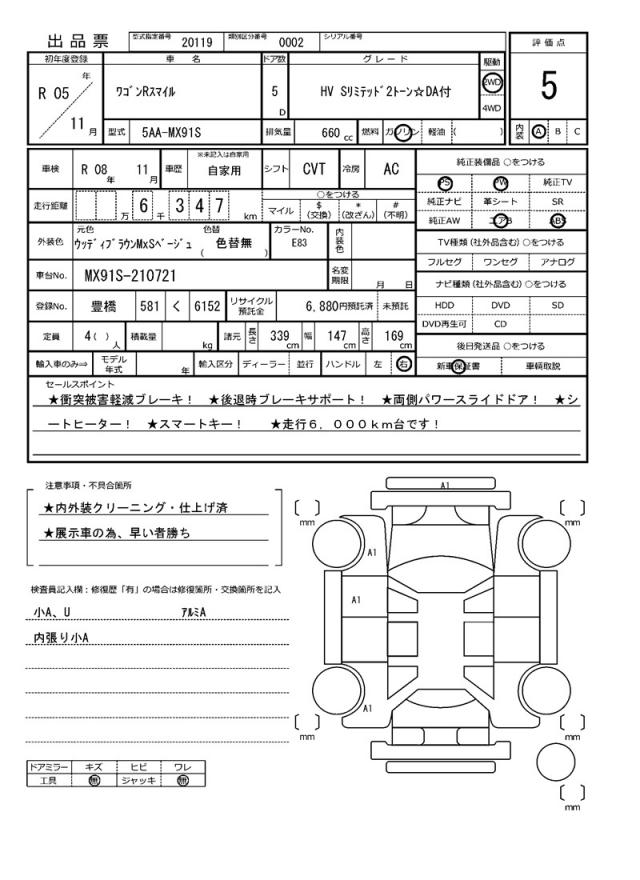 出品票
型式指定番号 20119 類別区分番号 0002 シリアル番号
評価点
5
内装 A B C
初年度登録 車名 ドア数 グレード 駆動
R 05 年 11 月
ワゴンRスマイル 5 D HV Sリミテッド2トーン☆DA付 2WD 4WD
型式 5AA-MX91S 排気量 660 cc 燃料 ガソリン 軽油 ( )
車検 R 08 年 11 月 車歴 ※未記入は自家用 自家用 シフト CVT 冷房 AC
走行距離 万 6 千 3 4 7 km
○をつける
マイル $ (交換) * (改ざん) # (不明)
外装色 元色 ウッディブラウンMxSベージュ 色替 ( 色替無 ) カラーNo. E83 内装色
車台No. MX91S-210721 名変期限 月 日
登録No. 豊橋 581 く 6152 リサイクル預託金 6,880円預託済 未預託
定員 4( ) 人 積載量 kg 諸元 長さ 339 cm 幅 147 cm 高さ 169 cm
輸入車のみ⇒ モデル年式 年 輸入区分 ディーラー 並行 ハンドル 左 右
純正装備品 ○をつける
PS PW 純正TV
純正ナビ 革シート SR
純正AW エアB ABS
TV種類 (社外品含む) ○をつける
フルセグ ワンセグ アナログ
ナビ種類 (社外品含む) ○をつける
HDD DVD SD
DVD再生可 CD
後日発送品 ○をつける
新車保証書 車輌取説
セールスポイント
★衝突被害軽減ブレーキ! ★後退時ブレーキサポート! ★両側パワースライドドア! ★シ
ートヒーター! ★スマートキー! ★走行6,000km台です!
注意事項・不具合箇所
★内外装クリーニング・仕上げ済
★展示車の為、早い者勝ち
検査員記入欄:修復歴「有」の場合は修復箇所・交換箇所を記入
小A、U アルミA
内張り小A
ドアミラー キズ ヒビ ワレ
工具 無 ジャッキ 無
A1
mm
mm
A1
A1
A1
mm
mm
mm